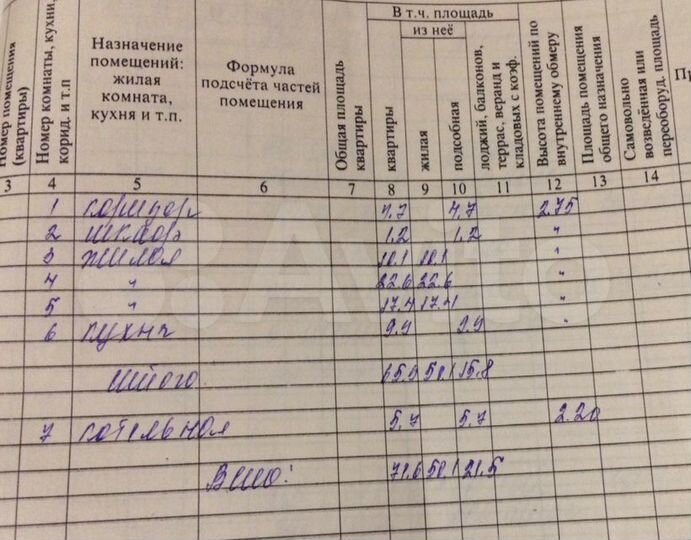 Номер помещения (квартиры)
Номер комнаты, кухни, корид. и т.п
Назначение помещений: жилая комната, кухня и т.п.
Формула подсчёта частей помещения
Общая площадь квартиры
В т.ч. площадь
из неё
квартиры
жилая
подсобная
лоджий, балконов, террас, веранд и кладовых с коэф.
Высота помещений по внутреннему обмеру
Площадь помещения общего назначения
Самовольно возведённая или переоборуд. площадь
3 4 5 6 7 8 9 10 11 12 13 14
1 коридор 4,7 4,7 2.75
2 шкаф 1,2 1,2 "
3 жилая 10,1 10,1 "
4 " 22,6 22,6 "
5 " 17,4 17,4 "
6 кухня 9,9 9,9 "
Итого 65,9 50,1 15,8
7 котельная 5,7 5,7 2.20
Всего: 71,6 50,1 21,5
Avito